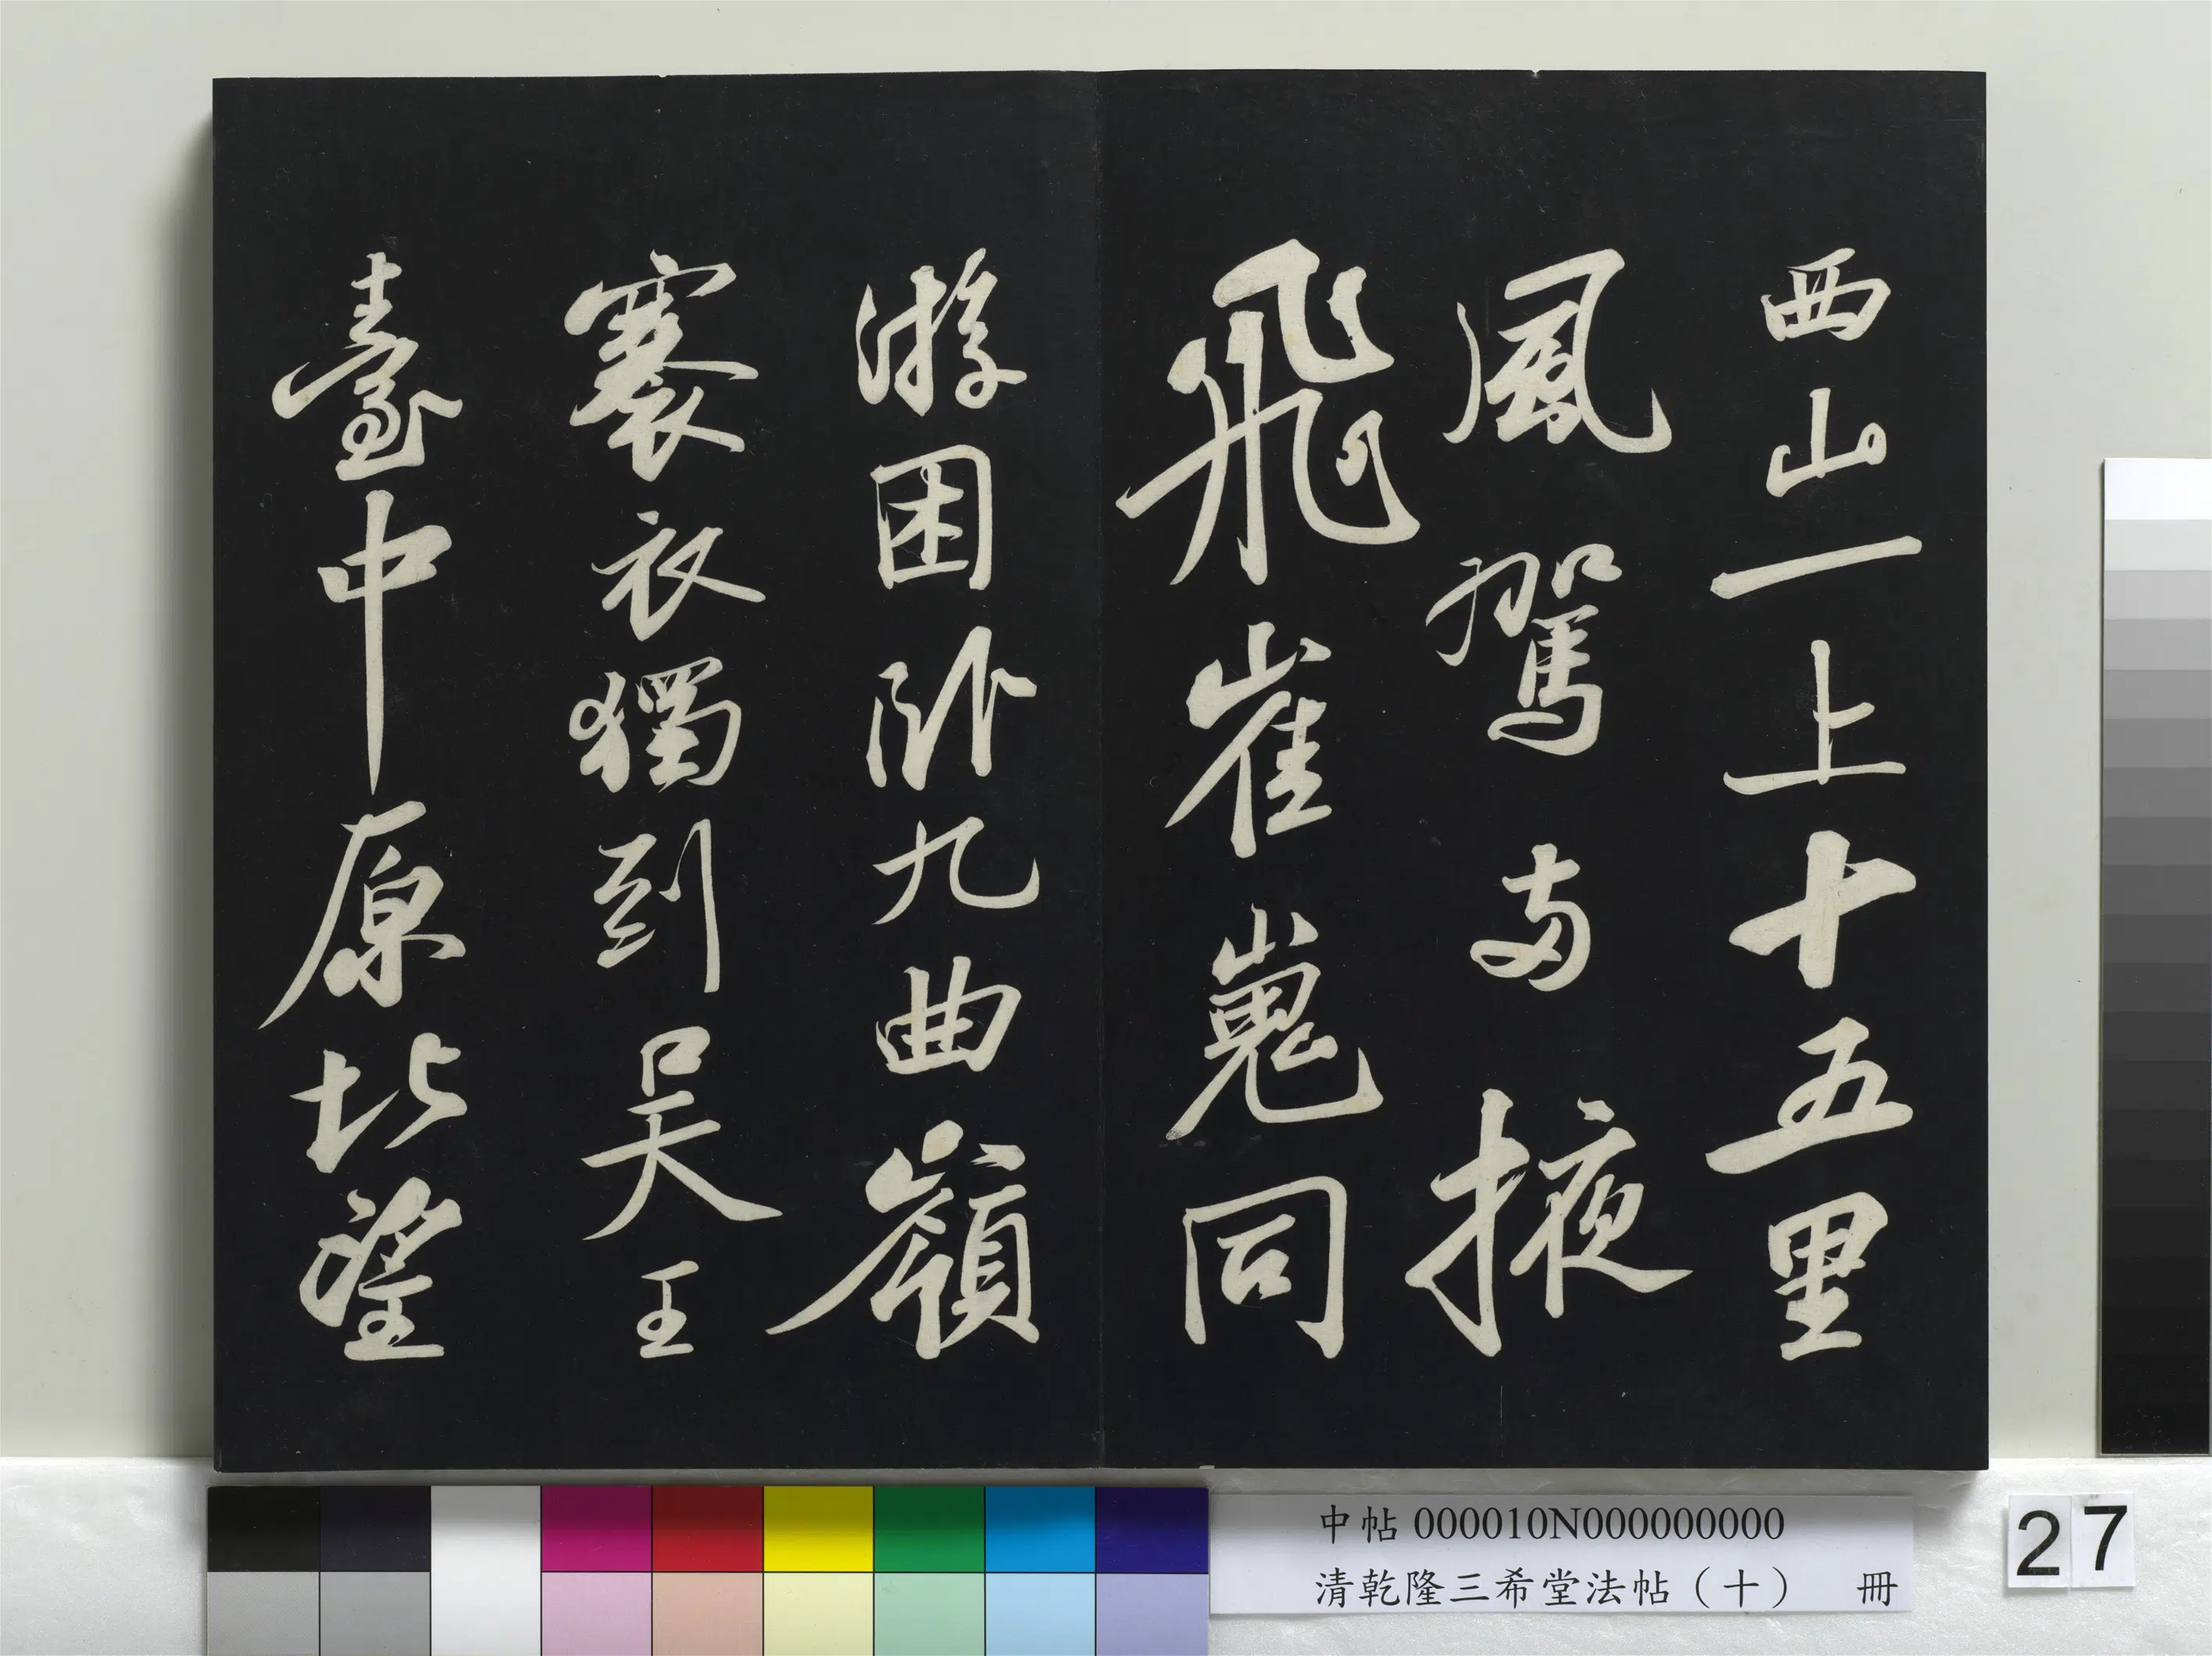 西山一上十五里
風駕兩掖
飛崔嵬同
游困卧九曲嶺
褰衣獨到吳王
臺中原北望
中帖 000010N000000000
清乾隆三希堂法帖（十） 冊
27